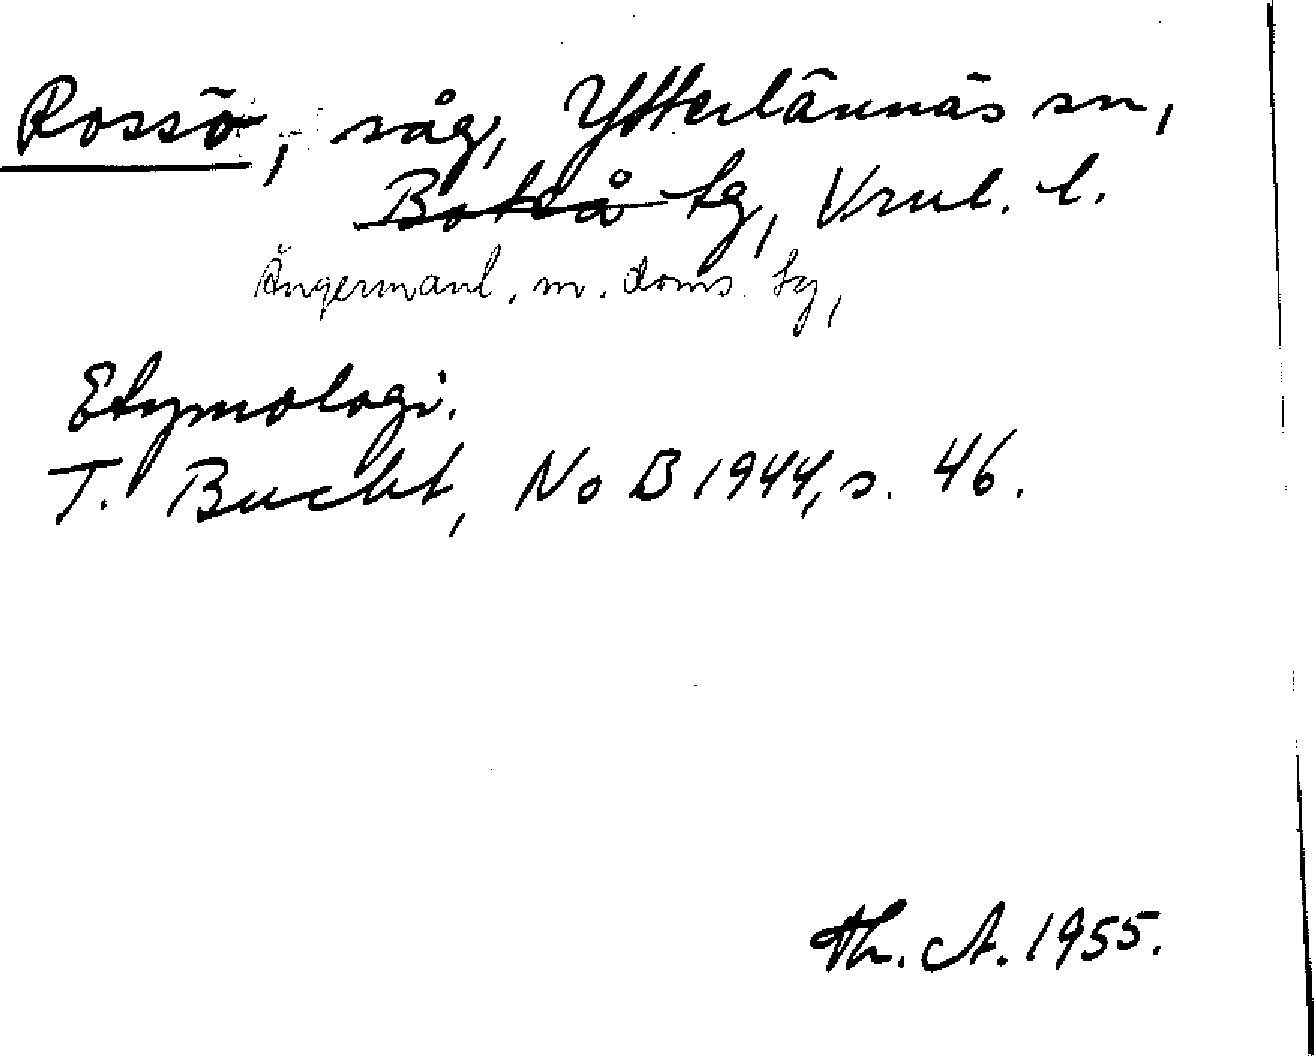 Rossö, såg, Ytterlännäs sn,
Boteå tg, Vnl. l.
Ångermanl. m. doms. tg,
Etymologi.
T. Bucht, NoB 1944, s. 46.
Th. A. 1955.